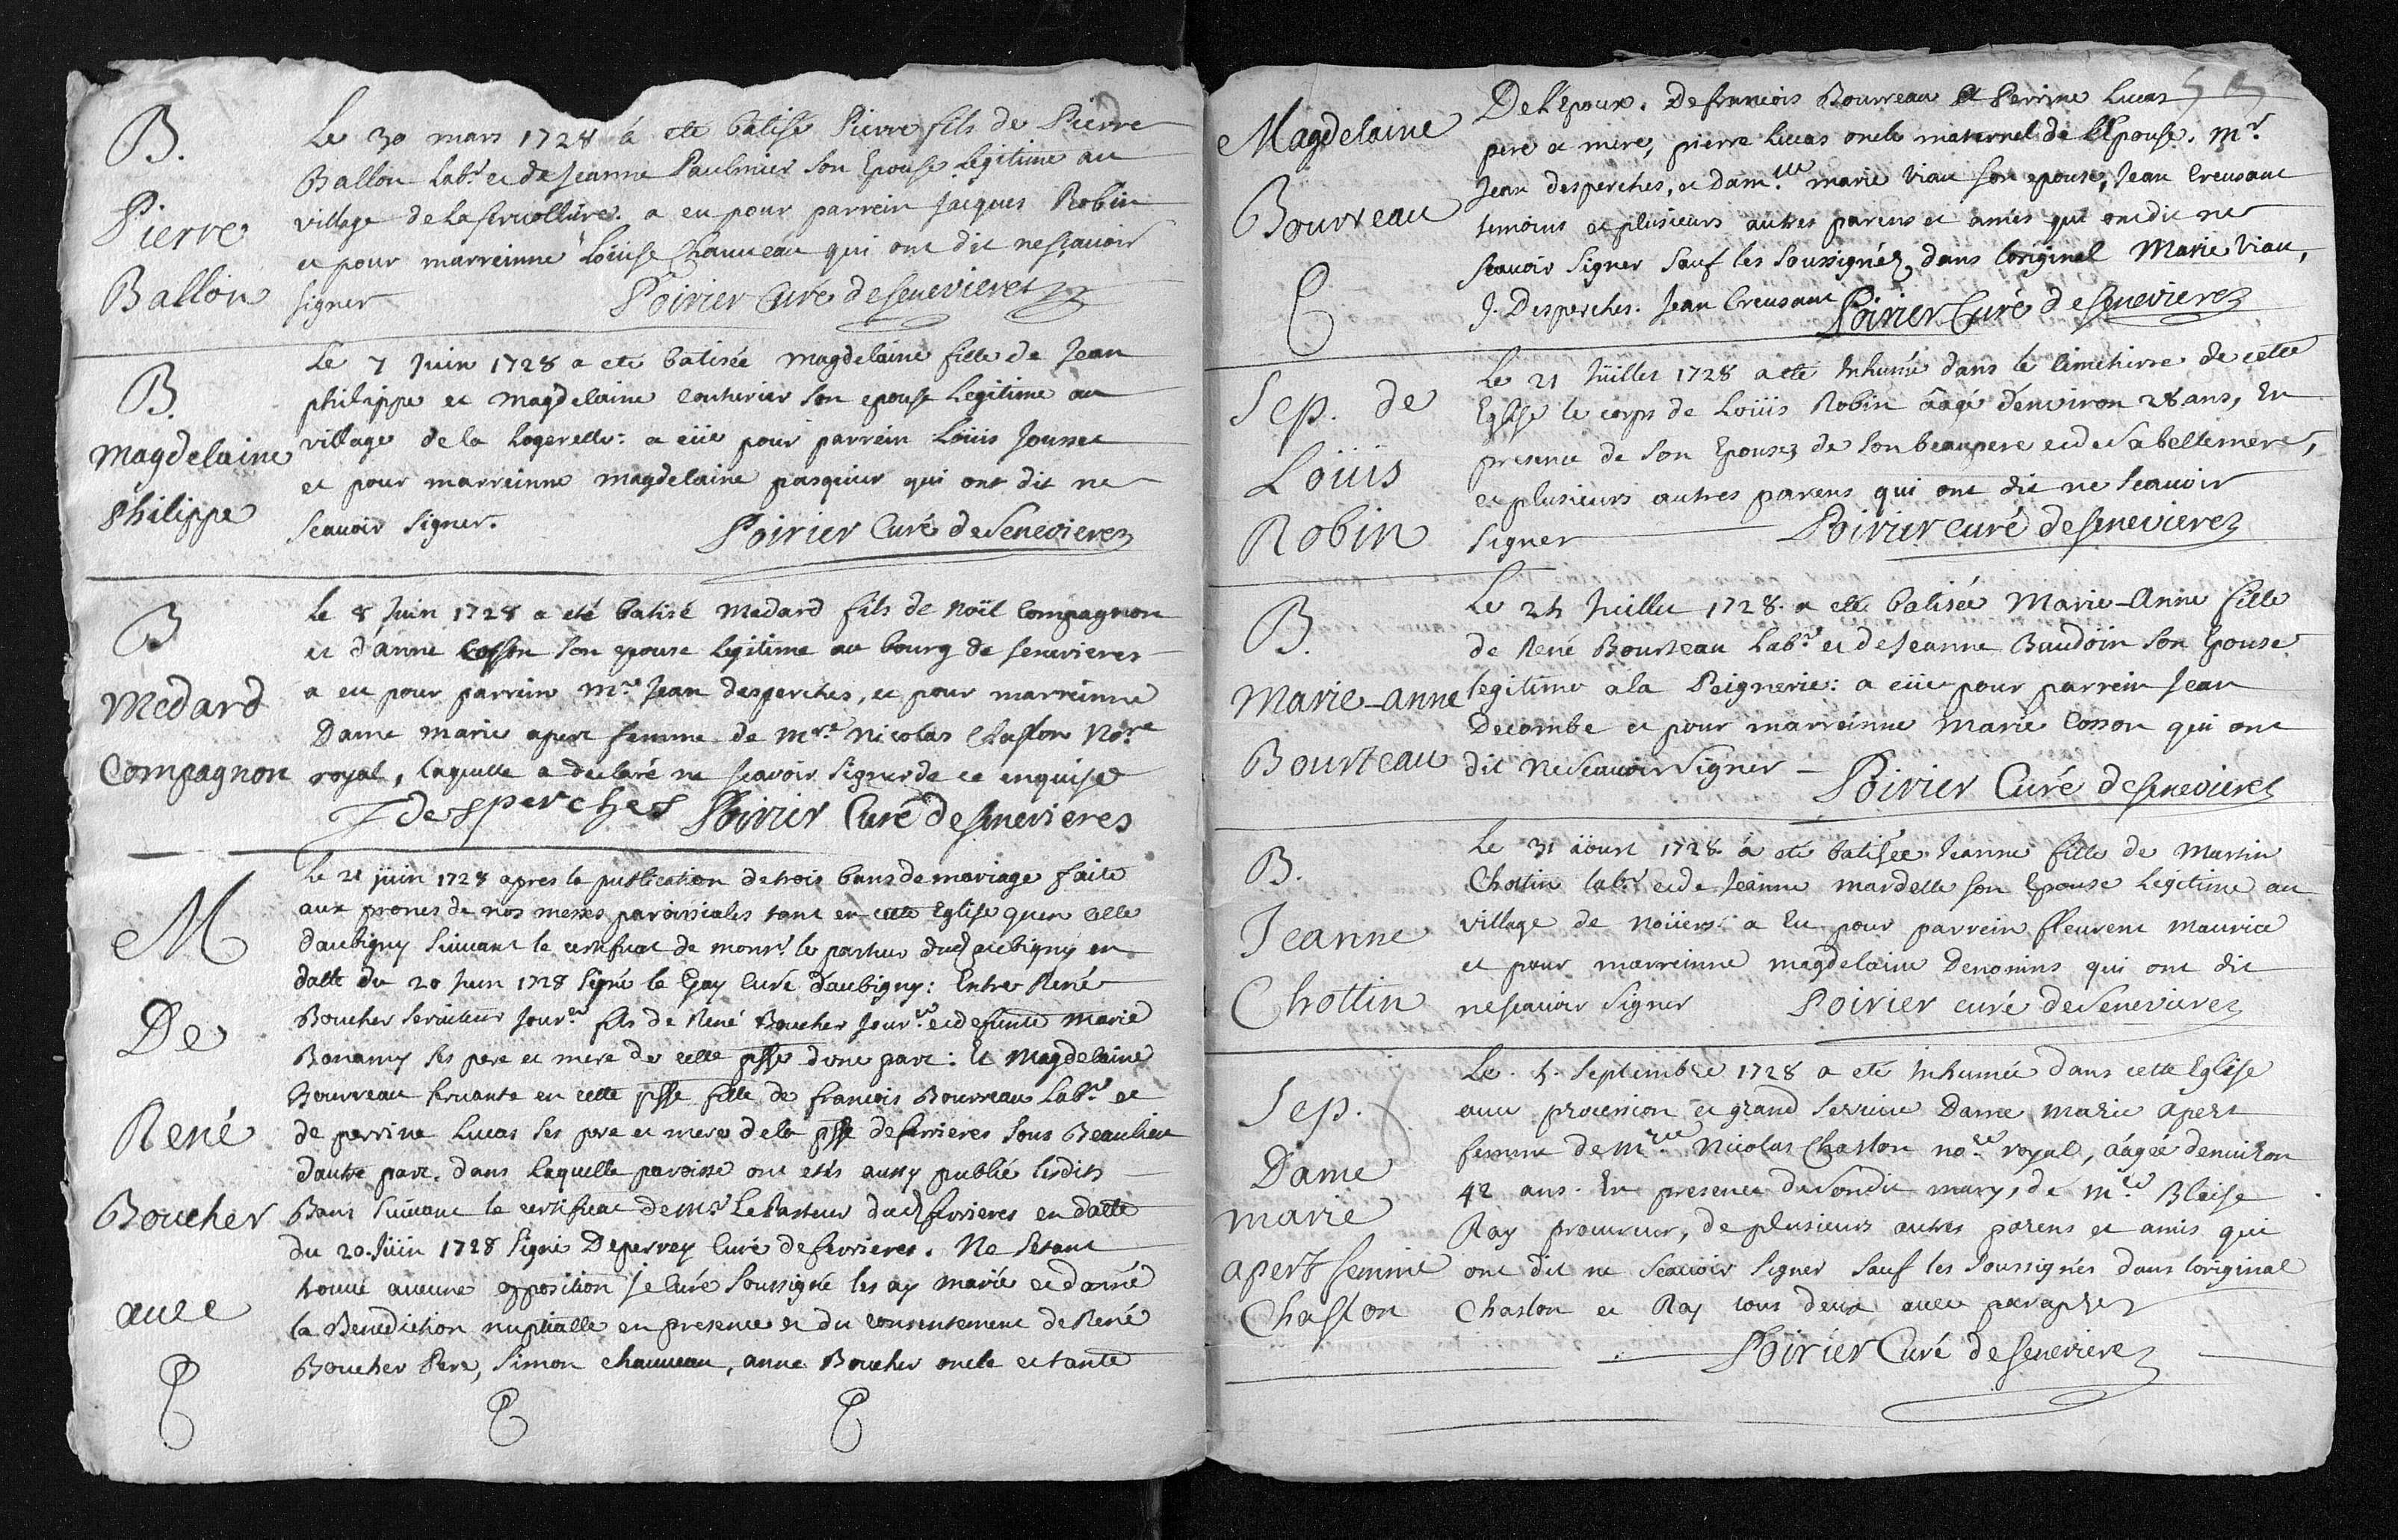 B.
Pierre
Ballon
Le 30 mars 1728 á eté batisé Pierre fils de Pierre
Ballon Labr. et de Jeanne Paulmier son Epouse Legitime au
village de la a eu pour parrein Jacques Robin
et pour marreinne Loüise Chauveau qui ont dit ne sçavoir
signer Poirier Curé de Senevieres
B.
Magdelaine
Philippe
Le 7 Juin 1728 a eté batisée Magdelaine fille de Jean
philippe et Magdelaine son epouse Legitime au
village de la Logerelle: a eüe pour parrein Loüis Jousset
et pour marreinne magdelaine pasquier qui ont dit ne
scavoir signer. Poirier Curé de Senevieres
B
Medard
Compagnon
Le 8 Juin 1728 a eté batisé Medard fils de Noël Compagnon
et d'anne Cosson son epouse Legitime au bourg de senevieres
a eu pour parrein Mre Jean desperches, et pour marreinne
Dame marie apert femme de Mre Nicolas Chaston Nore
royal, laquelle a declaré ne scavoir signer de ce enquise
J desperches Poirier Curé de Senevieres
M
De
René
Boucher
avec
Le 21 juin 1728 apres la publication de trois bans de mariage faite
aux prones de nos messes paroissiales tant en cette Eglise quen celle
daubigny suivant le certificat de monsr. le pasteur dud aubigny en
datte du 20 Juin 1728 signé le Gay Curé daubigny: Entre René
Boucher serviteur Jourer fils de René Boucher Jourer et defunte Marie
Bonamy ses pere et mere de cette psse d'une part: Et Magdelaine
Bourreau servante en cette psse fille de francois Bourreau Labr. et
de perrine Lucas ses pere et mere de la psse de ferrieres sous Beaulieu
dautre part. dans laquelle paroisse ont etés aussy publié lesdits
Bans suivant le certificat de Mr Le Pasteur dud ferrieres en datte
du 20. Juin 1728 signé Deperrey Curé de ferrieres. Ne setant
trouvé aucune opposition je Curé soussigné les ay marié et donné
la Benediction nuptialle en presence et du consentement de René
Boucher Pere, Simon Chauveau, anne Boucher oncle et tante
Magdelaine
Bourreau
De l'Epoux. De francois Bourreau et Perrine Lucas
pere et mere, pierre Lucas oncle maternel de l'Epouse. Mr.
Jean desperches, et damlle marie Viau son epouse, Jean Creusant
temoins et plusieurs autres parens et amis qui ont dit ne
scavoir signer sauf les soussignéz dans loriginal Marie Viau,
J. Desperches. Jean Creusant Poirier Curé de Senevieres
Sep. de
Loüis
Robin
Le 21 Juillet 1728 a eté Inhumé dans le Cimetierre de cette
Eglise le corps de Loüis Robin âagé d'environ 28 ans, En
presence de son Epouse, de son beaupere et de sa bellemere,
et plusieurs autres parens qui ont dit ne scavoir
signer Poirier curé de Senevieres
B.
Marie-anne
Bourteau
Le 24 Juillet 1728. a eté batisée Marie-Anne fille
de René Bourteau Labr. et de Jeanne Baudoin son Epouse
legitime a la Peignerie: a eüe pour parrein Jean
Decombe et pour marreinne Marie Cosson qui ont
dit ne scavoir signer Poirier Curé de Senevieres
B.
Jeanne
Chottin
Le 31 aoust 1728. á eté batisée Jeanne fille de Martin
Chottin labr. et de Jeanne mardelle son Epouse Legitime au
village de noüiers: a Eu pour parrein fleurent Maurice
et pour marreinne magdelaine Denonins qui ont dit
ne scavoir signer Poirier curé de Senevieres
Sep.
Dame
Marie
apert femme
Chaston
Le. 4. Septembre 1728 a eté Inhumée dans cette Eglise
avec procession et grand service Dame Marie apert
femme de Mre Nicolas Chaston nore royal, âagée denviron
42 ans. En presence de sondit mary, de Mre Blaise
Ray procureur, de plusieurs autres parens et amis qui
ont dit ne scavoir signer sauf les soussignés dans loriginal
Chaston et Ray tous deux avec paraphes
Poirier Curé de Senevieres